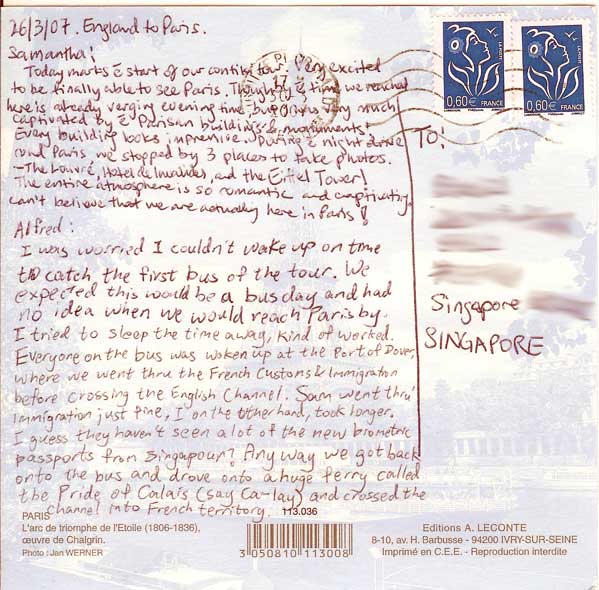 26/3/07. England to Paris.
Samantha:
Today marks è start of our contiki tour. Very excited
to be finally able to see Paris. Though by è time we reached
here is already verging evening time, but I was very much
captivated by è Parisan buildings & monuments!
Every building looks impressive. During è night drive
rund Paris, we stopped by 3 places to take photos.
- The Louvré, Hotel de Invalides, and the Eiffel Tower!
The entire atmosphere is so romantic and captivating,
can't believe that we are actually here in Paris!
Alfred:
I was worried I couldn't wake up on time
to catch the first bus of the tour. We
expected this would be a bus day and had
no idea when we would reach Paris by.
I tried to sleep the time away, kind of worked.
Everyone on the bus was woken up at the Port of Dover,
where we went thru the French Customs & Immigration
before crossing the English Channel. Sam went thru'
immigration just fine, I on the other hand, took longer.
I guess they haven't seen a lot of the new biometric
passports from Singapour? Anyway we got back
onto the bus and drove onto a huge ferry called
the Pride of Calais (say Ca-lay) and crossed the
channel into French territory.
TO:
Singapore
SINGAPORE
LA POSTE
0,60€ FRANCE
LA POSTE
0,60€ FRANCE
PARIS
L'arc de triomphe de l'Etoile (1806-1836),
œuvre de Chalgrin.
Photo : Jan WERNER
113.036
3 050810 113008
Editions A. LECONTE
8-10, av. H. Barbusse - 94200 IVRY-SUR-SEINE
Imprimé en C.E.E. - Reproduction interdite